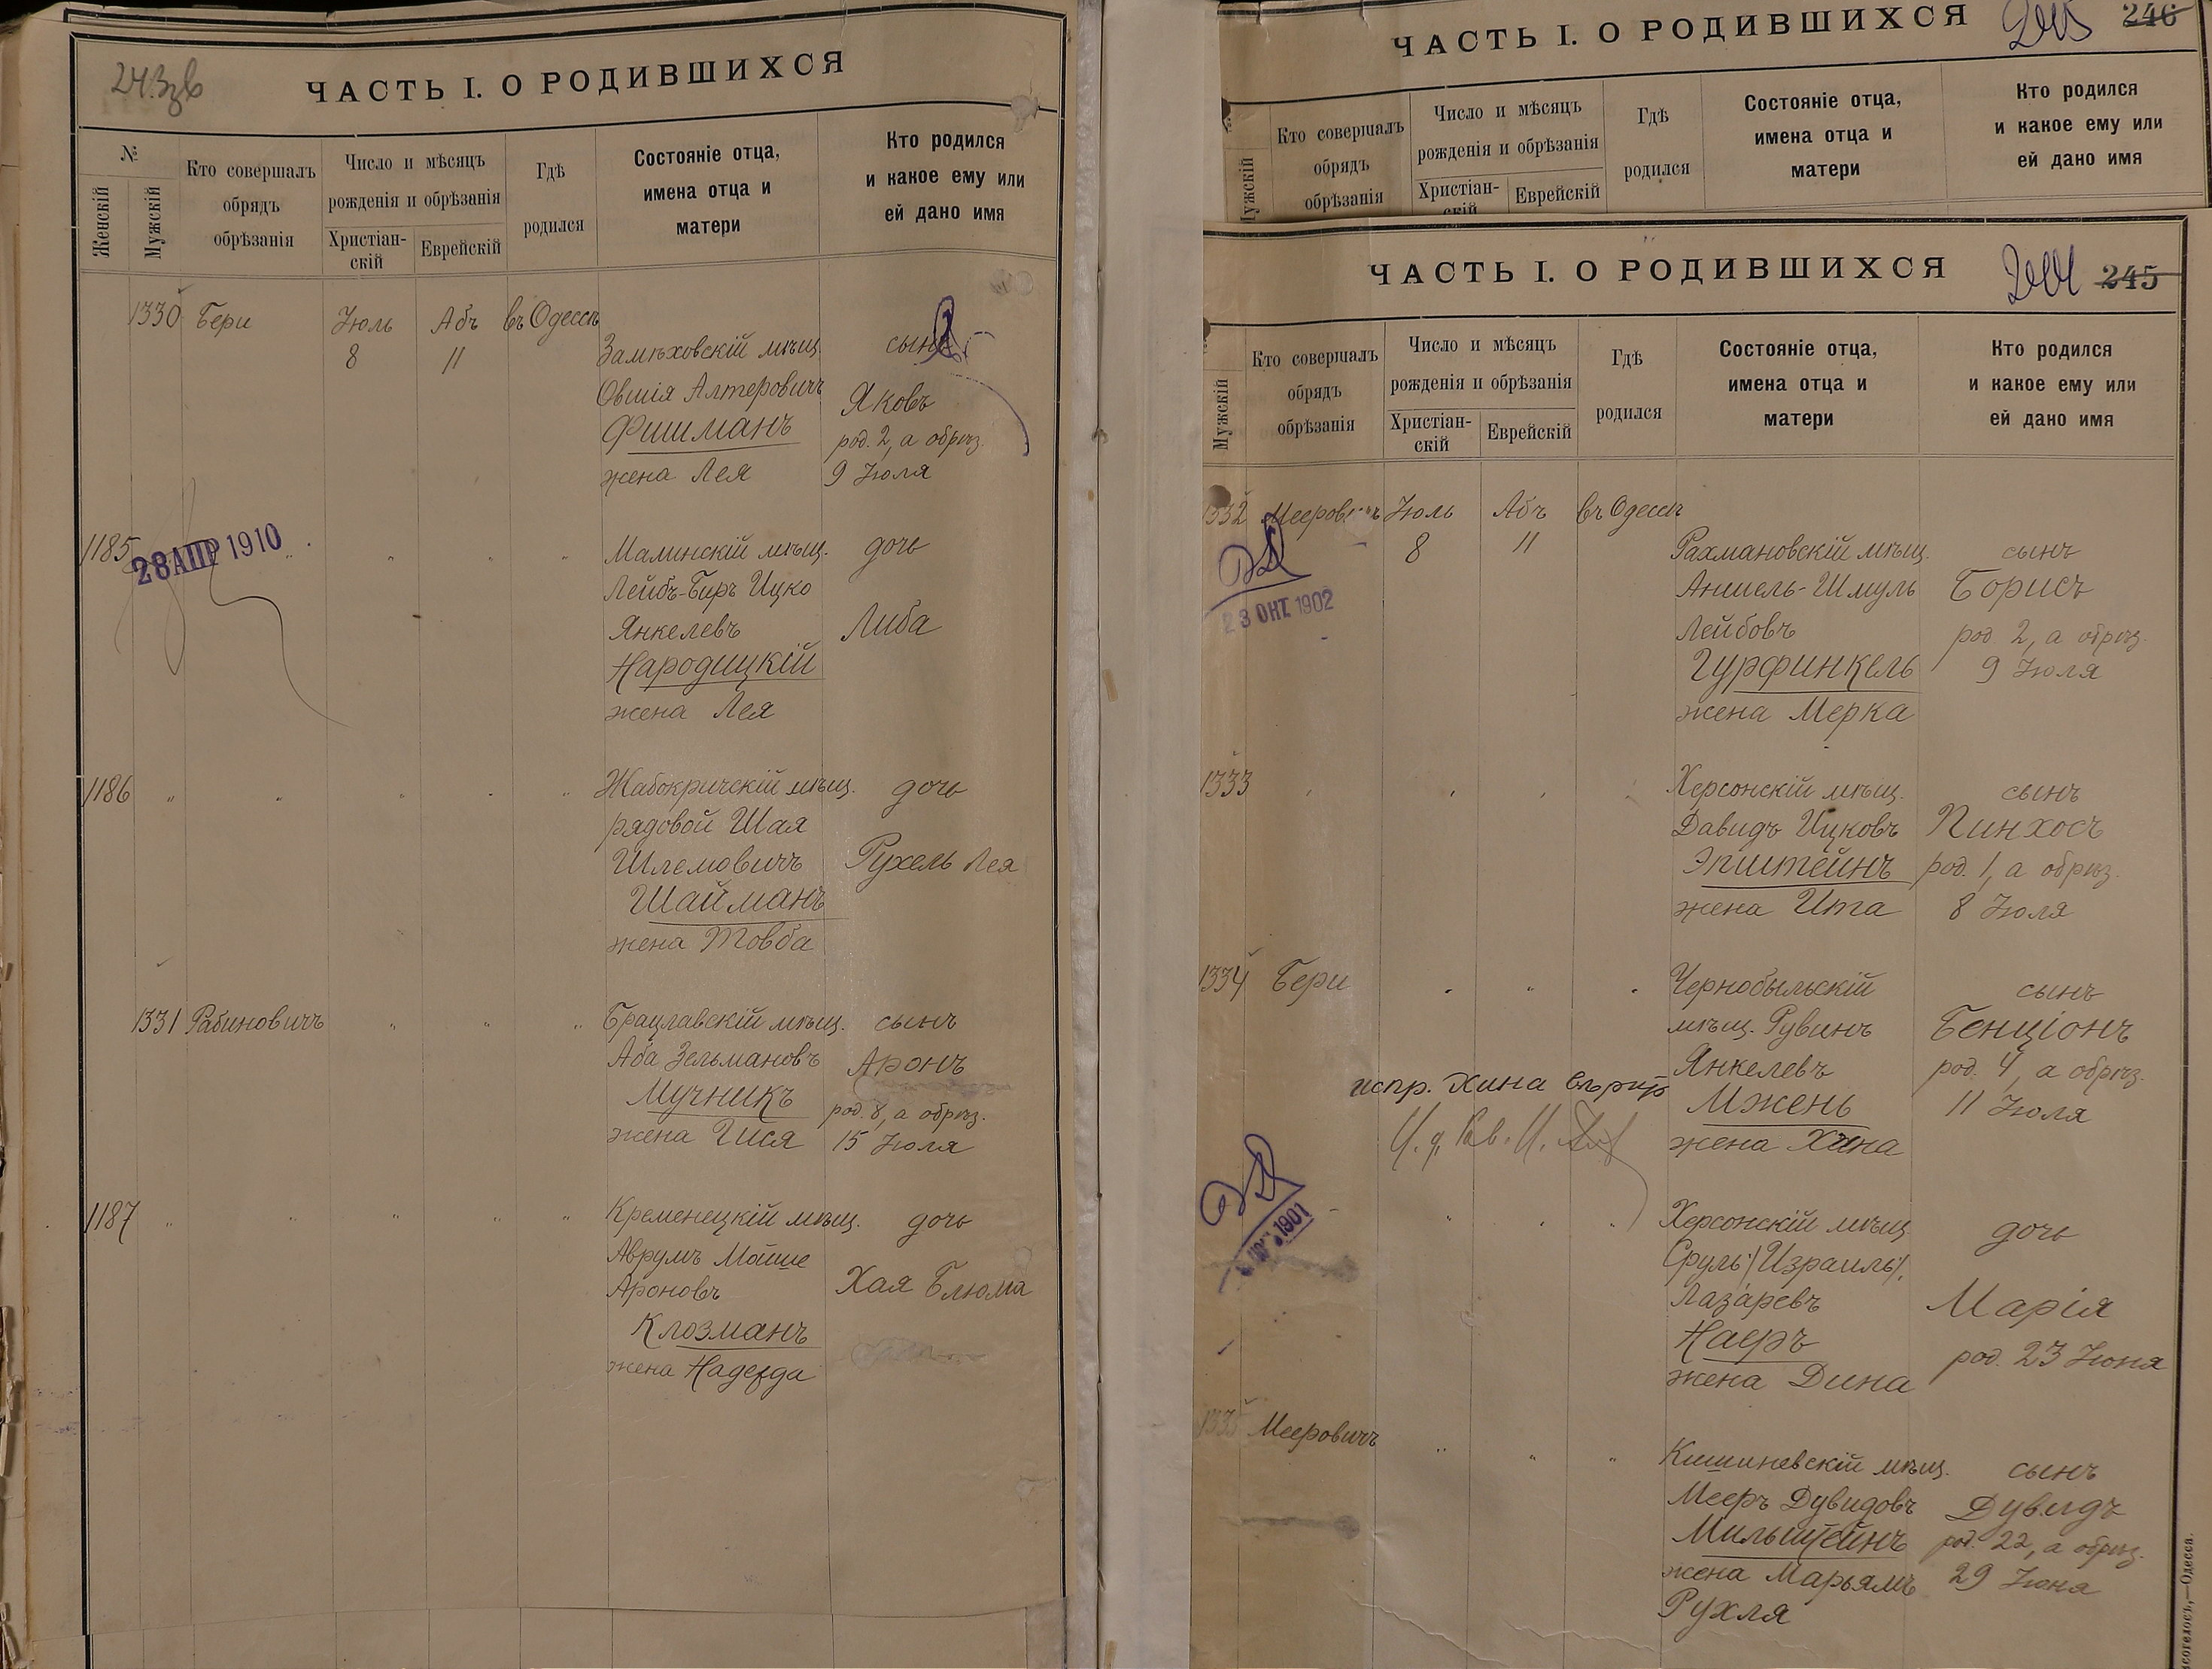 243зв
ЧАСТЬ I. О РОДИВШИХСЯ
№
Женскій
Мужскій
Кто совершалъ
обрядъ
обрѣзанія
Число и мѣсяцъ
рожденія и обрѣзанія
Христіан-
скій
Еврейскій
Гдѣ
родился
Состояніе отца,
имена отца и
матери
Кто родился
и какое ему или
ей дано имя
1330 Бери Іюль Абъ въ Одессѣ
8 11
Замѣховскій мѣщ. сынъ
Овшія Алтеровичъ Яковъ
Фишманъ род. 2, а обрѣз.
жена Лея 9 Іюля
1185 28 АПР 1910 " " " Малинскій мѣщ. дочь
Лейбъ-Беръ Ицко
Янкелевъ Либа
Народицкій
жена Лея
1186 " " " " " Жабокричскій мѣщ. дочь
рядовой Шая
Шлемовичъ Рухель Лея
Шайманъ
жена Товба
1331 Рабиновичъ " " " Брацлавскій мѣщ. сынъ
Аба Зельмановъ Аронъ
Мучникъ род. 8, а обрѣз.
жена Гися 15 Іюля
1187 " " " " " Кременецкій мѣщ. дочь
Аврумъ Мойше
Ароновъ Хая Блюма
Клозманъ
жена Надежда
ЧАСТЬ I. О РОДИВШИХСЯ
245 246
Мужскій
Кто совершалъ
обрядъ
обрѣзанія
Число и мѣсяцъ
рожденія и обрѣзанія
Христіан-
скій
Еврейскій
Гдѣ
родился
Состояніе отца,
имена отца и
матери
Кто родился
и какое ему или
ей дано имя
ЧАСТЬ I. О РОДИВШИХСЯ
244 245
Мужскій
Кто совершалъ
обрядъ
обрѣзанія
Число и мѣсяцъ
рожденія и обрѣзанія
Христіан-
скій
Еврейскій
Гдѣ
родился
Состояніе отца,
имена отца и
матери
Кто родился
и какое ему или
ей дано имя
1332 Мееровичъ Іюль Абъ въ Одессѣ
8 11
Рахмановскій мѣщ. сынъ
Аншель-Шмуль Борисъ
23 ОКТ. 1902
Лейбовъ род. 2, а обрѣз.
Гурфинкель 9 Іюля
жена Мерка
1333 " " " " Херсонскій мѣщ. сынъ
Давидъ Ицковъ Пинхосъ
Эпштейнъ род. 1, а обрѣз.
жена Ита 8 Іюля
1334 Бери " " " Чернобыльскій сынъ
мѣщ. Рувинъ Бенціонъ
Янкелевъ род. 4, а обрѣз.
испр. Хина вѣрно
Мжень 11 Іюля
жена Хина
И. д. Рав. И.
1901
" " " Херсонскій мѣщ. дочь
Сруль /Израиль/
Лазаревъ Марія
Наеръ род. 23 Іюня
жена Дина
1335 Мееровичъ " " " Кишиневскій мѣщ. сынъ
Мееръ Дувидовъ Дувидъ
Мильштейнъ род. 22, а обрѣз.
жена Марьямъ 29 Іюня
Рухля
Одесса.